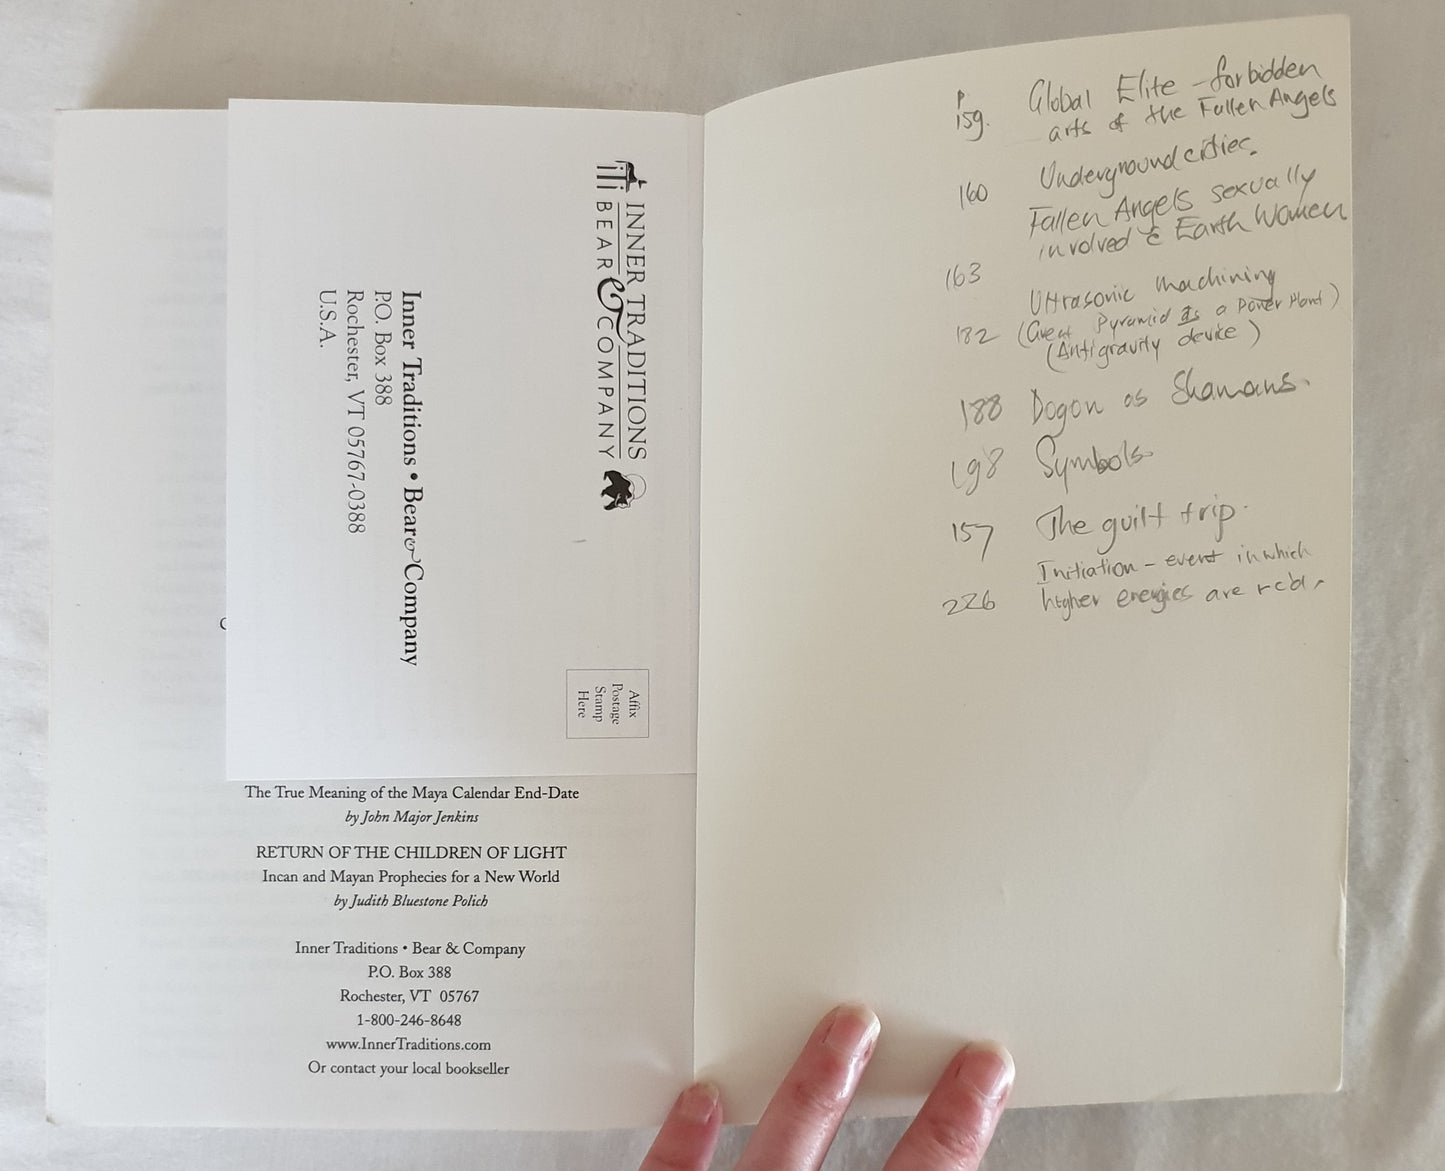 INNER TRADITIONS
BEAR & COMPANY
Inner Traditions • Bear & Company
P.O. Box 388
Rochester, VT 05767-0388
U.S.A.
Affix
Postage
Stamp
Here
The True Meaning of the Maya Calendar End-Date
by John Major Jenkins
RETURN OF THE CHILDREN OF LIGHT
Incan and Mayan Prophecies for a New World
by Judith Bluestone Polich
Inner Traditions • Bear & Company
P.O. Box 388
Rochester, VT 05767
1-800-246-8648
www.InnerTraditions.com
Or contact your local bookseller
p. 159. Global Elite - forbidden
arts of the Fallen Angels
160 Underground cities.
Fallen Angels sexually
163 involved c Earth Women
Ultrasonic machining
182 (Great Pyramid as a Power Plant)
(Antigravity device)
188 Dogon as Shamans.
198 Symbols.
157 The guilt trip.
Initiation - event in which
226 higher energies are rc'd.